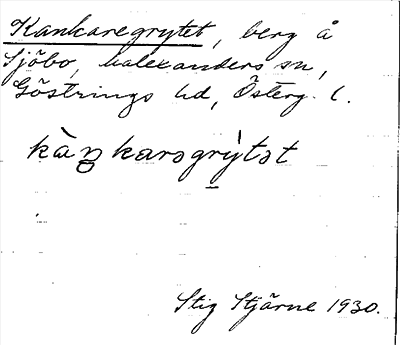 Kankaregrytet, berg å
Sjöbo, Kalexanders sn,
Göstrings hd, Österg. l.
kàŋkarəgrỳtət
Stig Stjärne 1930.